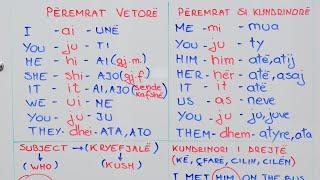 PËREMRAT VETORË
I - ai - UNË
YOU - ju - TI
HE - hi - AI (gj.m.)
SHE - shi - AJO (gj.f)
IT - it - AI, AJO (sende kafshë)
WE - ui - NE
YOU - ju - JU
THEY - dhei - ATA, ATO
SUBJECT → (KRYEFJALË)
(WHO) (KUSH)
PËREMRAT SI KUNDRINORË
ME - mi - mua
YOU - ju - ty
HIM - him - atë, atij
HER - hër - atë, asaj
IT - it - atë
US - as - neve
YOU - ju - ju, juve
THEM - dhem - atyre, ata
KUNDRINORI I DREJTË
(KË, ÇFARË, CILIN, CILËN)
I MET HIM